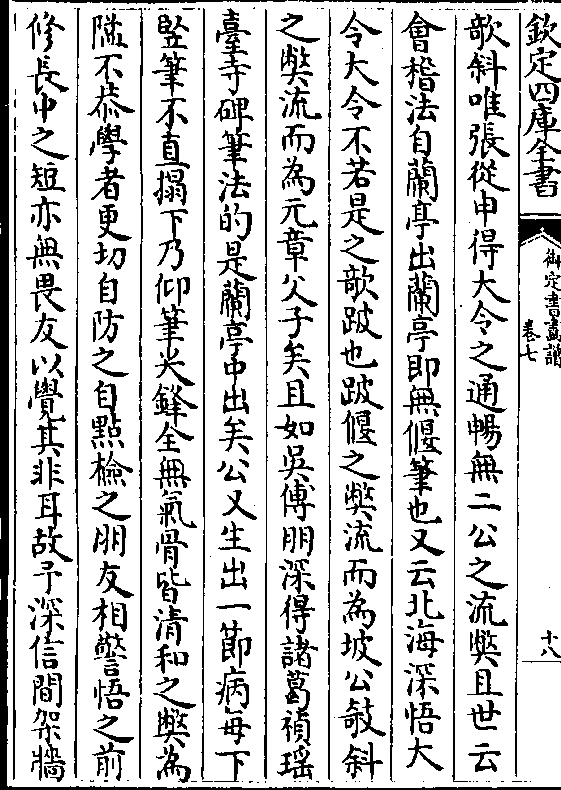 欽定四庫全書
御定書畫譜
卷七
十八
欹斜唯張從申得大令之通暢無二公之流獘且世云
會稽法自蘭亭出蘭亭即無偃筆也又云北海深悟大
令大令不若是之欹跛也跛偃之獘流而為坡公攲斜
之獘流而為元章父子矣且如吳傅朋深得諸葛禎瑶
臺寺碑筆法的是蘭亭中出矣公又生出一節病每下
竪筆不直搨下乃仰筆尖鋒全無氣骨皆清和之獘為
隘不恭學者更切自防之自點檢之朋友相警悟之前
修長中之短亦無畏友以覺其非耳故予深信間架牆